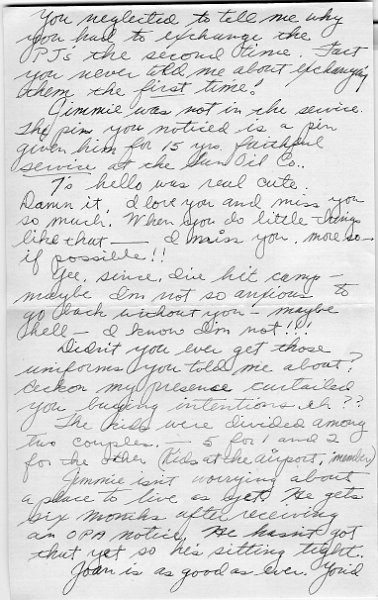 You neglected to tell me why
you had to exchange the
PJ's the second time. Fact
you never told me about exchanging
them the first time!
Jimmie was not in the service.
The pin you noticed is a pin
given him for 15 yrs. faithful
service at the Sun Oil Co..
T's hello was real cute.
Damn it, I love you and miss you
so much. When you do little things
like that — I miss you, more so –
if possible!!
Gee, since I've hit camp –
maybe I'm not so anxious to
go back without you – maybe
hell – I know I'm not!!!
Didn't you ever get those
uniforms you told me about?
Reckon my presense curtailed
you buying intentions eh??
The kids were divided among
two couples. – 5 for 1 and 2
for the other. (Kids at the airport, 'member)
Jimmie isn't worrying about
a place to live as yet. He gets
six months after receiving
an OPA notice. He hasn't got
that yet so he's sitting tight.
Joan is as good as ever. You'd